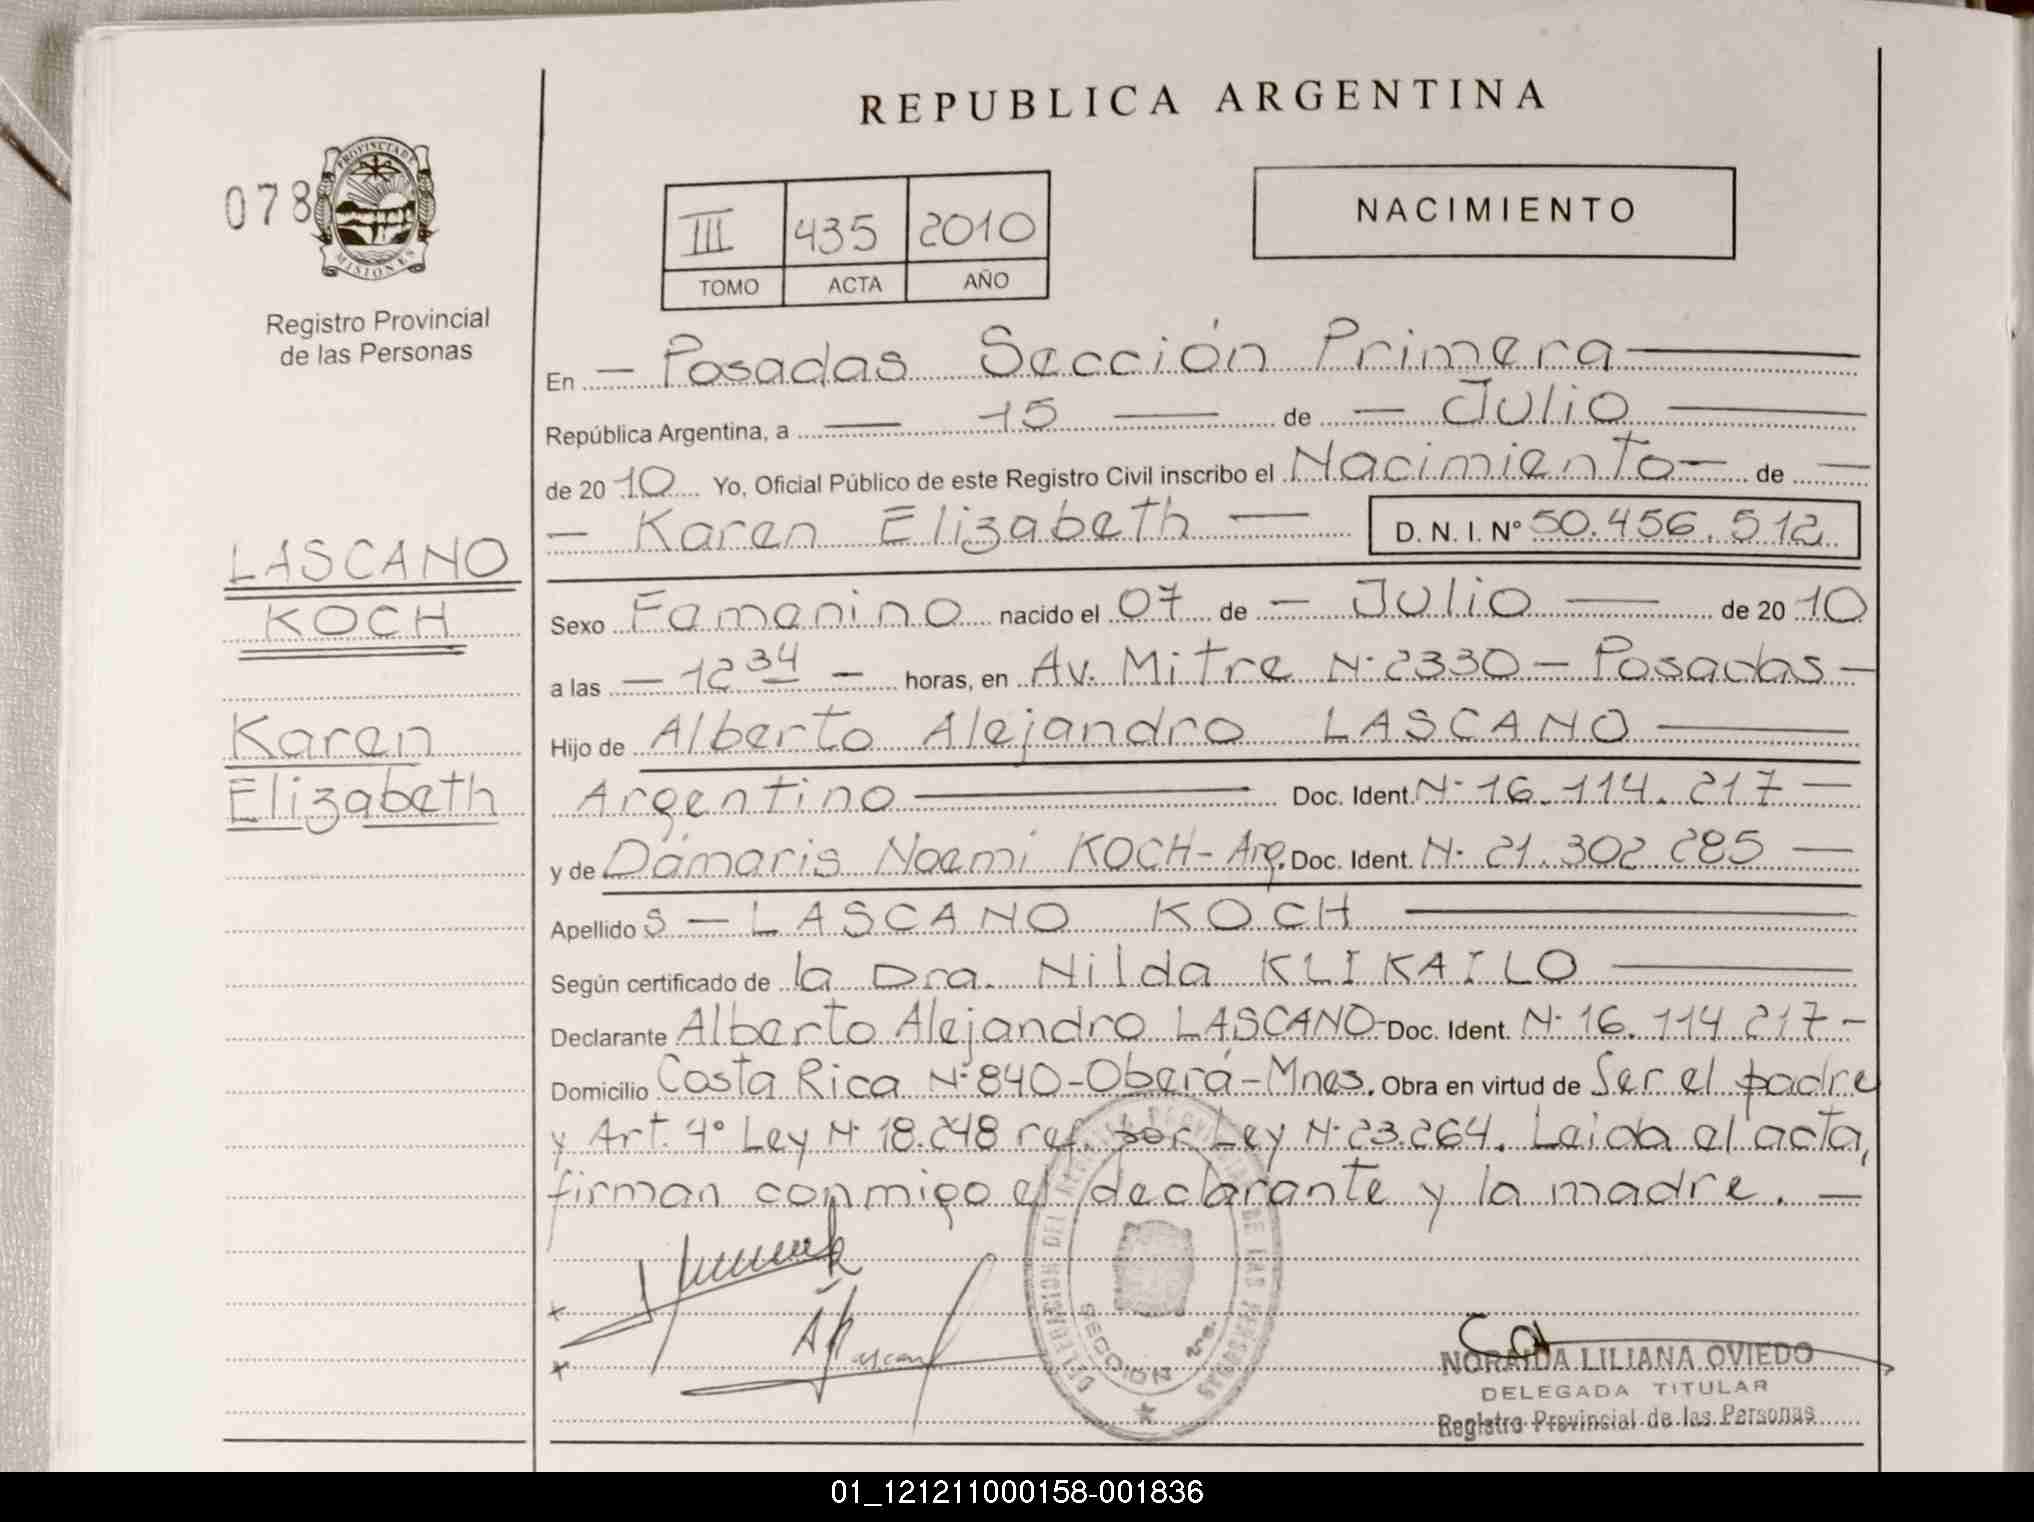 REPUBLICA ARGENTINA
078
PROVINCIA DE
MISIONES
Registro Provincial
de las Personas
III 435 2010
TOMO ACTA AÑO
NACIMIENTO
En - Posadas Sección Primera
República Argentina, a - 15 - de - Julio
de 2010 Yo, Oficial Público de este Registro Civil inscribo el Nacimiento - de -
- Karen Elizabeth - D. N. I. Nº 50.456.512
LASCANO
KOCH
Karen
Elizabeth
Sexo Femenino nacido el 07 de - Julio - de 2010
a las - 12 34 - horas, en Av. Mitre Nº 2330 - Posadas -
Hijo de Alberto Alejandro LASCANO
Argentino Doc. Ident. Nº 16.114.217 -
y de Dámaris Noemi KOCH - Arg. Doc. Ident. Nº 21.302.285 -
Apellido S - LASCANO KOCH
Según certificado de la Dra. Nilda KLIKAILO
Declarante Alberto Alejandro LASCANO - Doc. Ident. Nº 16.114.217 -
Domicilio Costa Rica Nº 840 - Oberá - Mnes. Obra en virtud de Ser el padre
y Art. 4º Ley Nº 18.248 ref. por Ley Nº 23.264. Leida el acta,
firman conmigo el declarante y la madre. -
DELEGACION DEL REGISTRO PROVINCIAL DE LAS PERSONAS
SECCION 1ra.
NORAIDA LILIANA OVIEDO
DELEGADA TITULAR
Registro Provincial de las Personas
01_121211000158-001836